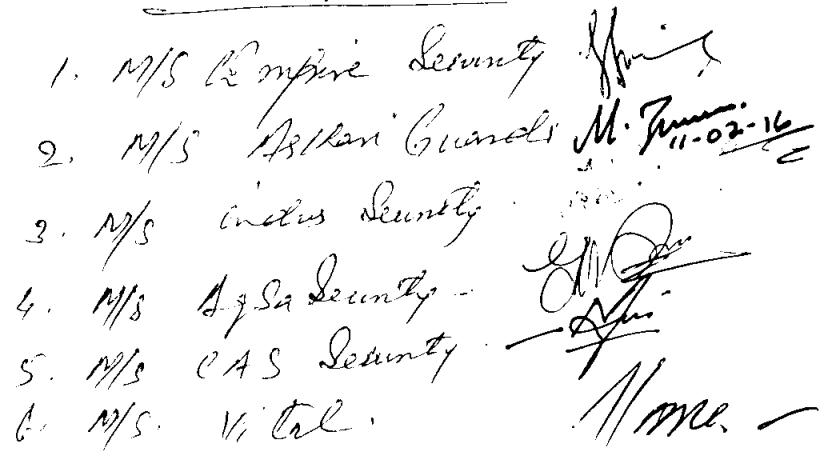 1. M/S Empire Security
2. M/S Askari Guards M. 11-02-16
3. M/S indus Security
4. M/S AqSa Security -
5. M/S CAS Security
6. M/S. Vital.